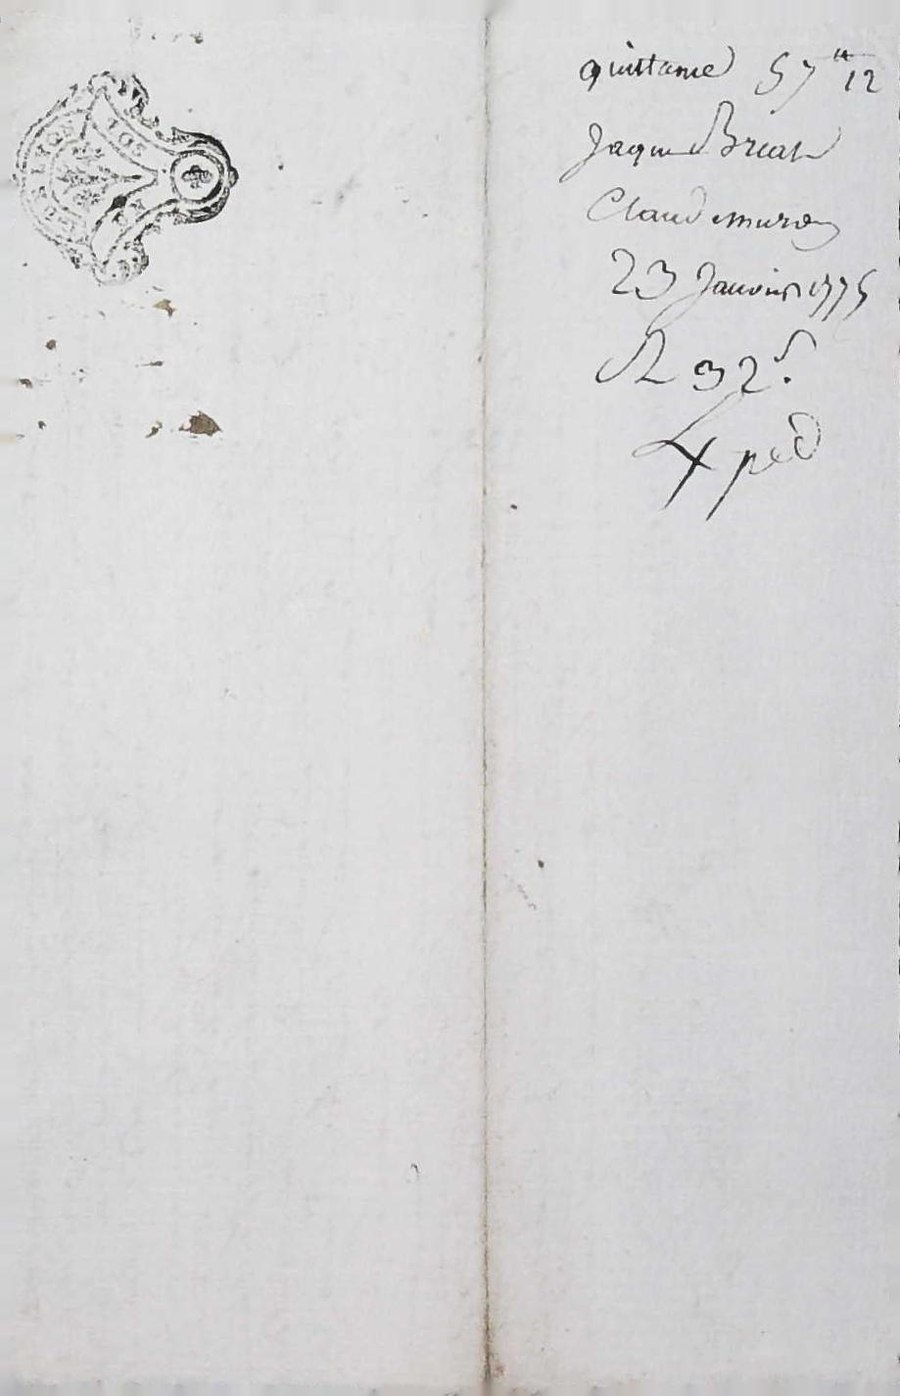 quittance 57 tt 12
Jaque Briat
Claude mure
23 Janvier 1775
R 32 s.
4 ped